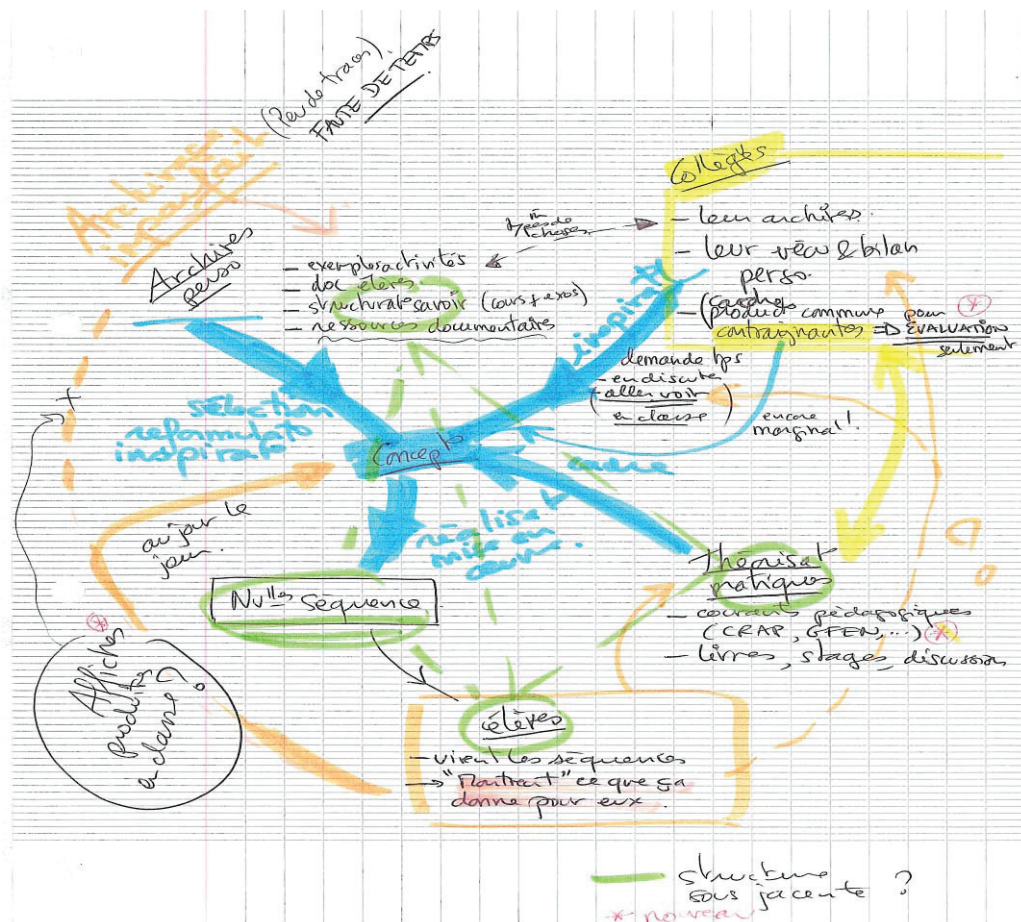 (Peu de traces).
FAUTE DE TEMPS
Archivage
imparfait
Archives
perso
- exemples activités
- doc élèves
- structurat° savoir (cours + exos)
- ressources documentaires
m̂
types de
choses
Collègues
- leurs archives.
- leur vécu & bilan
perso.
- product° commune pour
contraignantes ⇒ EVALUATION
seulement
demande tps
- en discuter
- aller voir
en classe
encore
marginal !
inspirat°
sélection
reformulat°
inspirat°
Concept°
cadre
réalisat°
mise en
œuvre.
au jour le
jour.
+
Nvlles séquence
Théorisat°
pratiques
- courants pédagogiques
(CRAP, GFEN, ...) *
- livres, stages, discussions
?
Affiches
produites
en classe ?
élèves
- vivent les séquences
→ "Montrent" ce que ça
donne pour eux.
structure
sous jacente ?
* nouveau